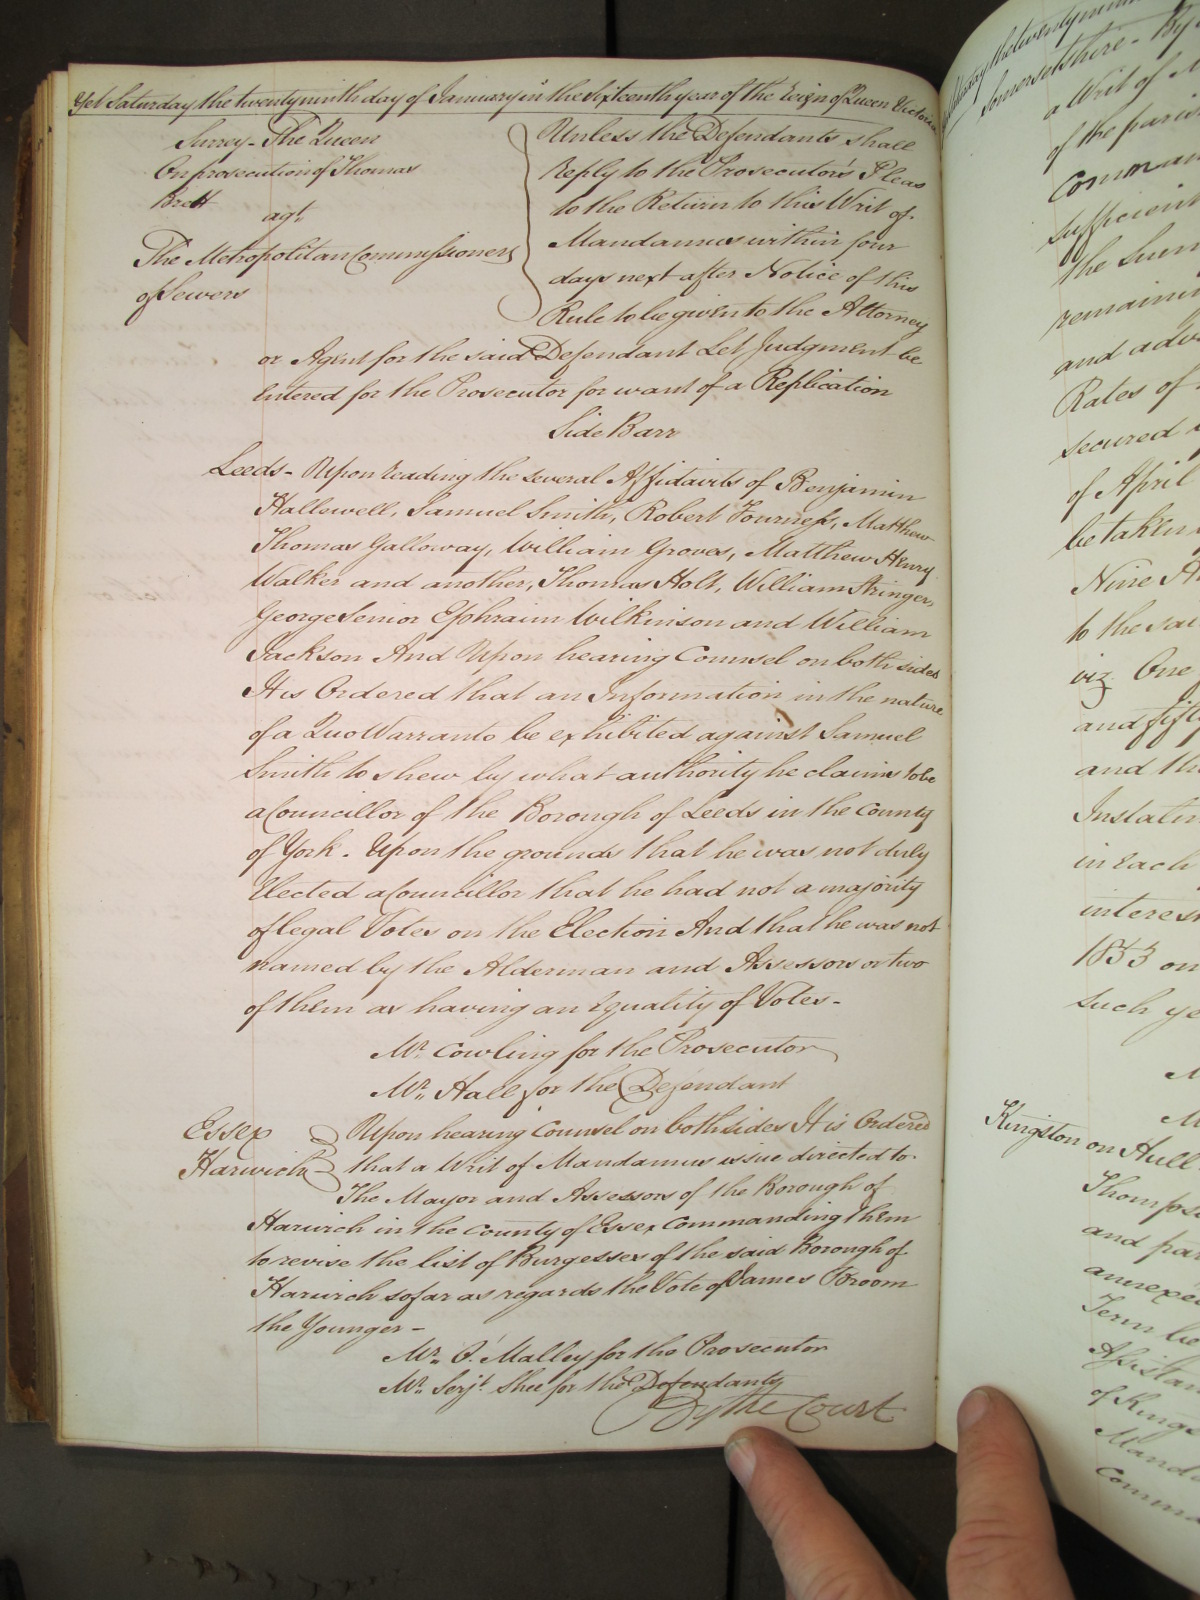 Yet Saturday the twentyninth day of January in the Sixteenth year of the Reign of Queen Victoria
Surrey - The Queen
On prosecution of Thomas
Brett
agt.
The Metropolitan Commissioners
of Sewers
Unless the Defendants shall
Reply to the Prosecutor's Pleas
to the Return to this Writ of
Mandamus within four
days next after Notice of this
Rule to be given to the Attorney
or Agent for the said Defendant Let Judgment be
Entered for the Prosecutor for want of a Replication
Side Barr
Leeds - Upon reading the several Affidavits of Benjamin
Hallewell, Samuel Smith, Robert Fourness, Matthew
Thomas Galloway, William Groves, Matthew Henry
Walker and another, Thomas Holt, William Stringer,
George Senior Ephraim Wilkinson and William
Jackson And Upon hearing Counsel on both sides
It is Ordered that an Information in the nature
of a Quo Warranto be exhibited against Samuel
Smith to shew by what authority he claims to be
a Councillor of the Borough of Leeds in the County
of York. Upon the grounds that he was not duly
Elected a Councillor that he had not a majority
of legal Votes on the Election And that he was not
named by the Alderman and Assessors or two
of them as having an Equality of Votes -
Mr. Cowling for the Prosecutor
Mr. Hall for the Defendant
Essex
Harwich
Upon hearing Counsel on both sides It is Ordered
that a Writ of Mandamus issue directed to
The Mayor and Assessors of the Borough of
Harwich in the County of Essex Commanding them
to revise the list of Burgesses of the said Borough of
Harwich so far as regards the Vote of James Broom
the Younger -
Mr. O'Malley for the Prosecutor
Mr. Serjt. Shee for the Defendants
By the Court
Somersetshire - By
a Writ of M
of the paris
Comman
sufficient
the Sum
remainin
and adva
Rates of
secured
of April
be taken
Nine
to the sai
viz. One
and fift
and th
Instalm
in Each
interes
1853 on
such ye
M
M
Kingston on Hull
Thomps
and par
annexe
Term be
Assistan
of Kings
Manda
Comma